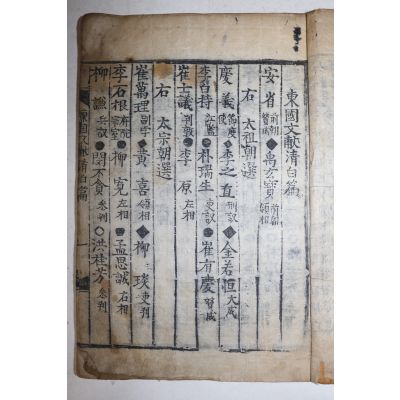 東國文獻淸白篇
安省 前朝 贊成 禹玄寶 前朝 領相
右 太祖朝選
慶義 李之直 刑議 金若恒 大成
李百持 朴瑞生 吏議 崔有慶 贊成
崔士議 判敦 李原 左相
右 太宗朝選
崔萬理 副学 黃喜 領相 柳琰 吏判
李石根 柳寬 左相 孟思誠 右相
柳謙 兵議 閔不貪 參判 洪桂芳 參判
東國文獻淸白篇 一